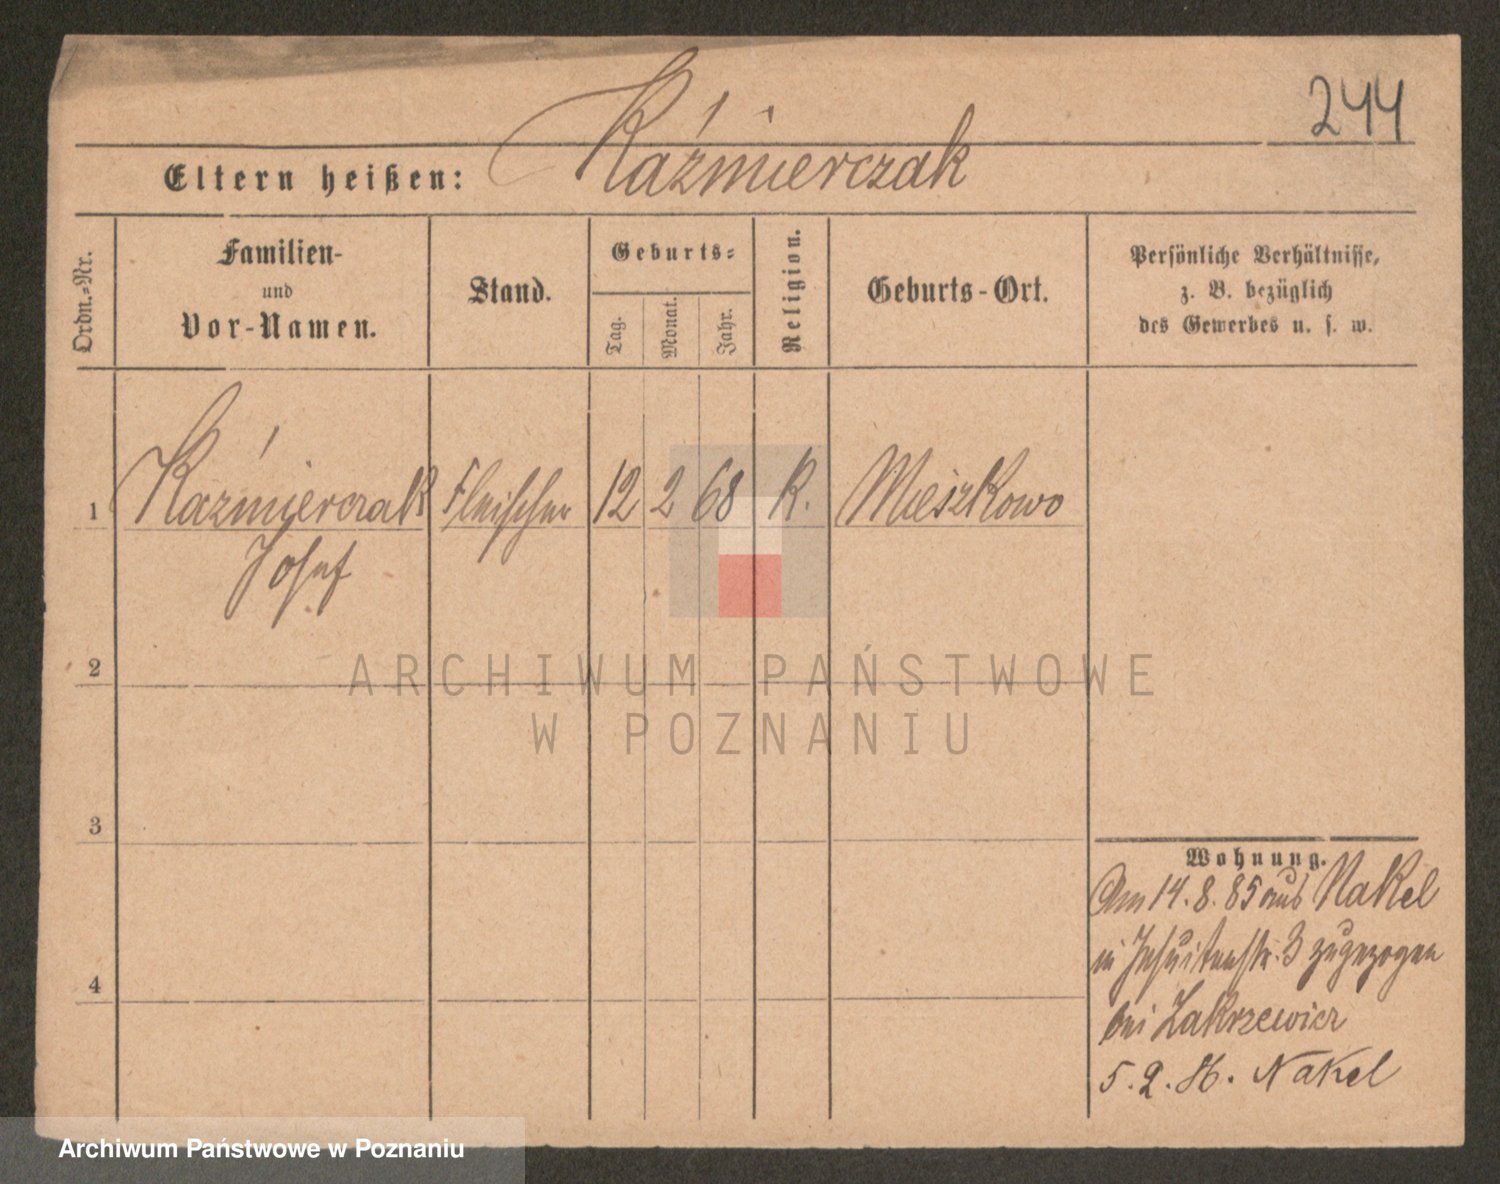 244
Kaźmierczak
Eltern heißen:
Ordn.-Nr.
Familien-
und
Vor-Namen.
Stand.
Geburts-
Tag.
Monat.
Jahr.
Religion.
Geburts-Ort.
Persönliche Verhältnisse,
z. B. bezüglich
des Gewerbes u. s. w.
1 Kaźmierczak Fleischer 12 2 68 K. Mieszkowo
Josef
2
ARCHIWUM PAŃSTWOWE
W POZNANIU
3
Wohnung.
Am 14. 8. 85 aus Nakel
in Jesuitenstr. 3 zugezogen
4
bei Zakrzewicz
5. 2. 86. Nakel
Archiwum Państwowe w Poznaniu